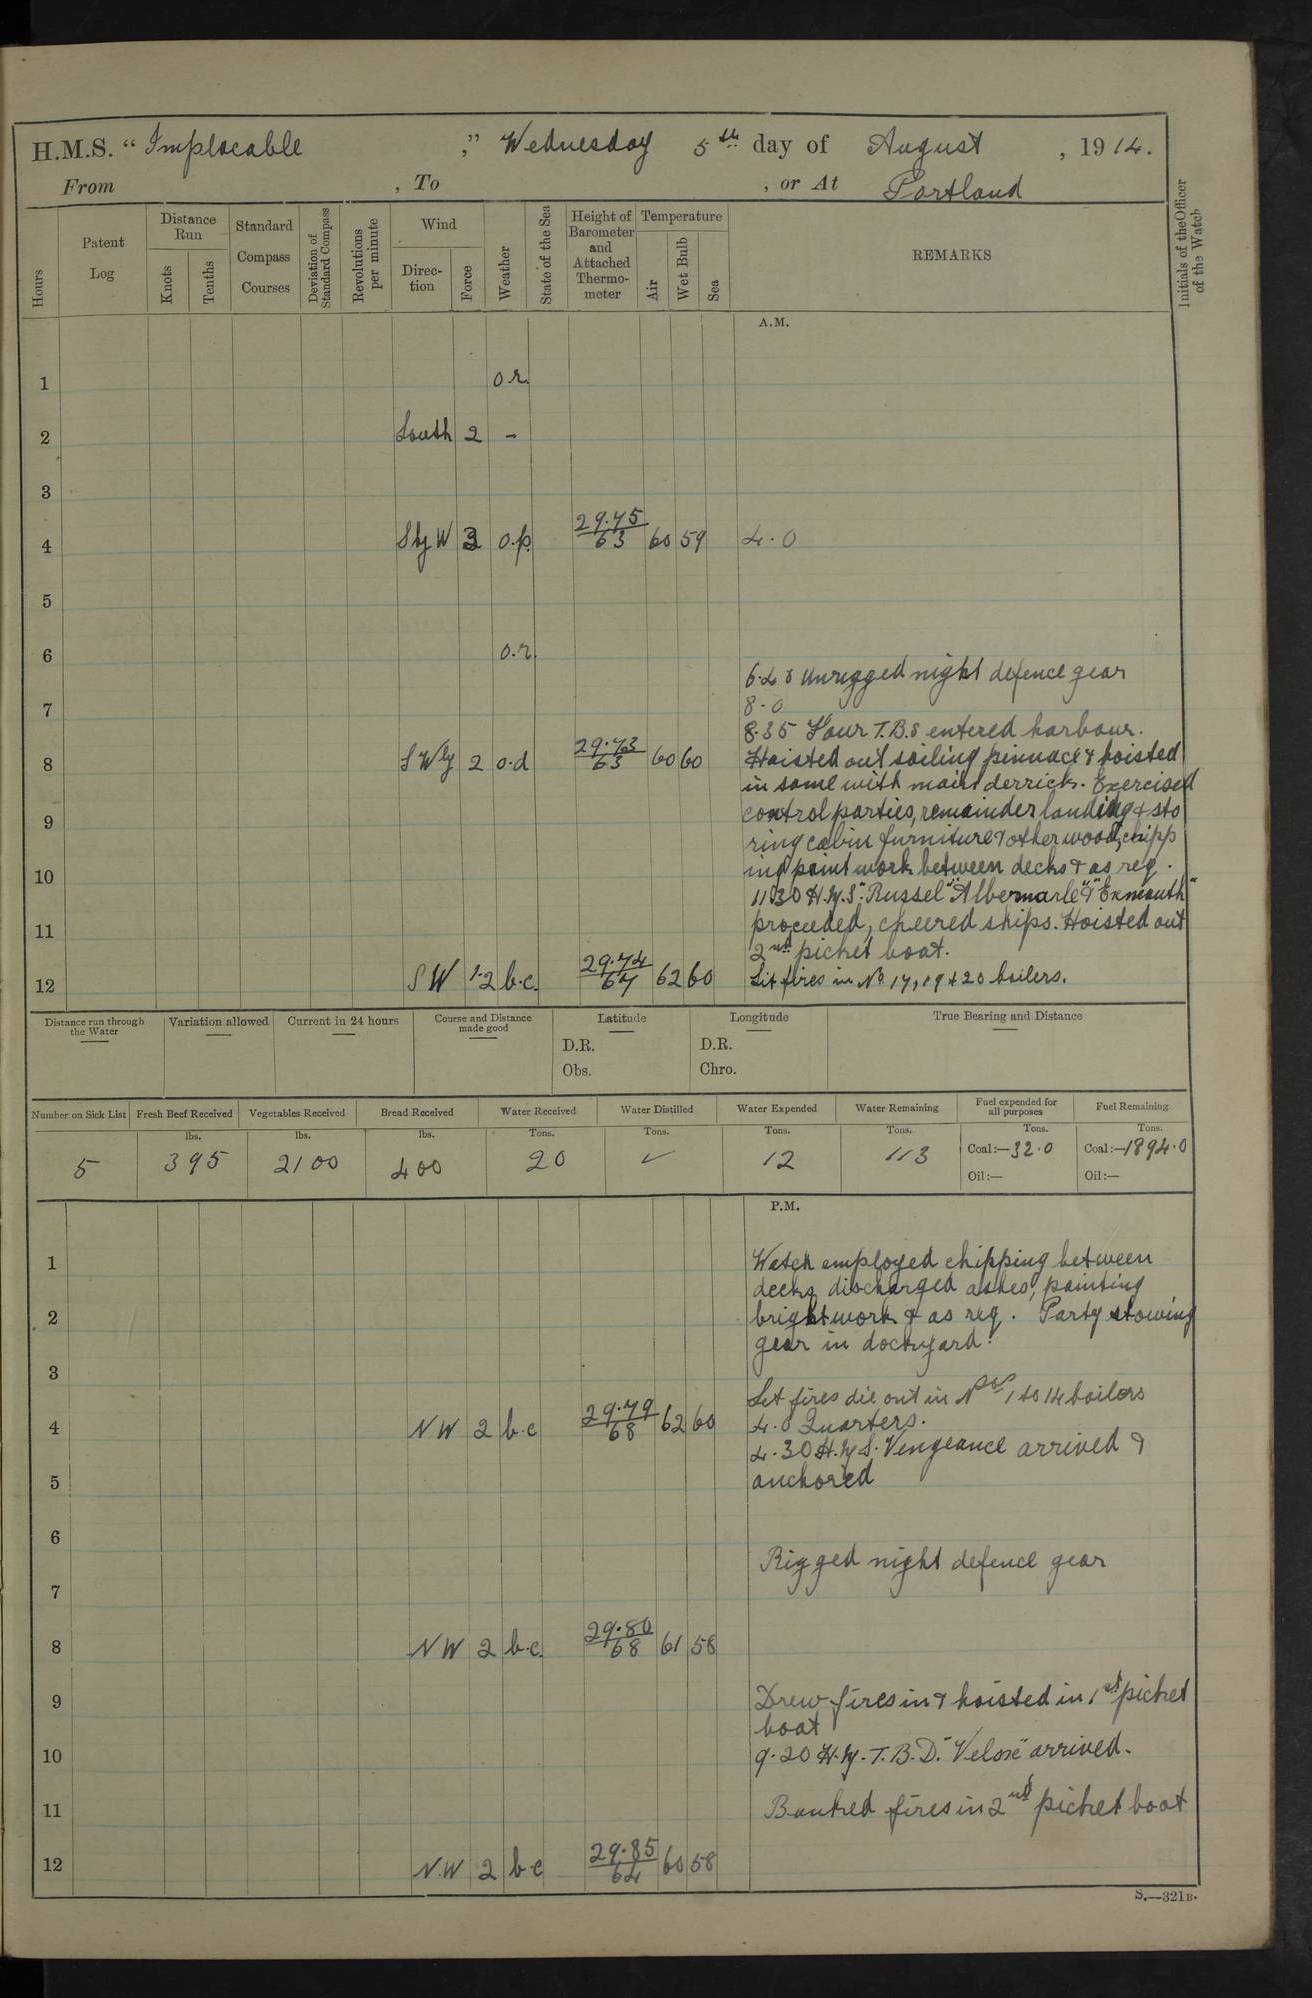 H.M.S. “ Implacable ,” Wednesday 5th day of August , 1914.
From , To , or At Portland
Hours
Patent Log
Distance Run
Knots
Tenths
Standard Compass Courses
Deviation of Standard Compass
Revolutions per minute
Wind
Direc-tion
Force
Weather
State of the Sea
Height of Barometer and Attached Thermo-meter
Temperature
Air
Wet Bulb
Sea
REMARKS
Initials of the Officer of the Watch
A.M.
1 o.r.
2 South 2 -
3
4 S by W 3 o.p. 29.75/63 60 59 4.0
5
6 o.r.
6.40 Unrigged night defence gear
8.0
8.35 Four T.B.s entered harbour.
8 SWly 2 o.d 29.73/63 60 60 Hoisted out sailing pinnace & hoisted
in same with main derrick. Exercised
control parties, remainder landing & sto
9
ring cabin furniture & other wood, chipp
10 ing paint work between decks & as req.
11.30 H.M.S. "Russel" "Albermarle" & "Exmouth"
11 proceeded, cheered ships. Hoisted out
2nd picket boat.
12 SW 1.2 b.c. 29.74/64 62 60 Lit fires in No 17, 19 & 20 boilers.
Distance run through the Water
Variation allowed
Current in 24 hours
Course and Distance made good
Latitude
D.R.
Obs.
Longitude
D.R.
Chro.
True Bearing and Distance
Number on Sick List
Fresh Beef Received
Vegetables Received
Bread Received
Water Received
Water Distilled
Water Expended
Water Remaining
Fuel expended for all purposes
Fuel Remaining
lbs. lbs. lbs. Tons. Tons. Tons. Tons. Tons. Tons.
5 395 2100 400 20 ✓ 12 113 Coal:—32.0 Coal:—1894.0
Oil:— Oil:—
P.M.
1 Watch employed chipping between
decks, discharged ashes, painting
2 brightwork & as req. Party stowing
gear in dockyard.
3
Let fires die out in Nos 1 to 14 boilers
4 NW 2 b.c 29.79/68 62 60 4.0 Quarters.
4.30 H.M.S. Vengeance arrived &
5 anchored
6
Rigged night defence gear
7
8 NW 2 b.c. 29.80/68 61 58
9 Drew fires in & hoisted in 1st picket
boat
10 9.20 H.M.T.B.D. "Velox" arrived.
11 Banked fires in 2nd picket boat
12 N.W 2 b.c 29.85/64 60 58
S.—321B.